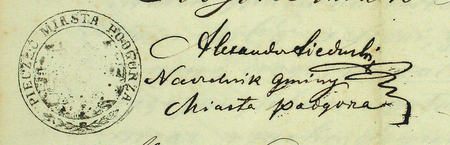 PIECZĘĆ MIASTA PODGORZA
Alexander
Naczelnik gminy
Miasta podgorza